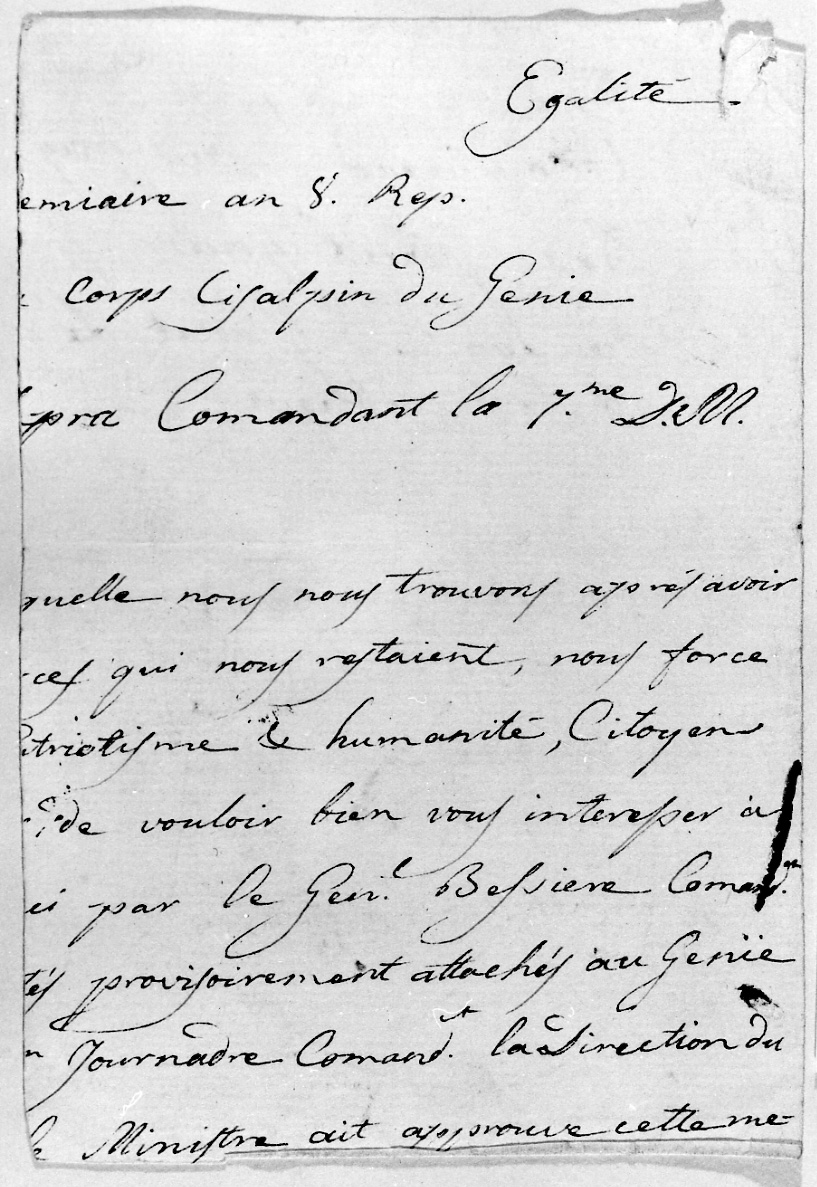 Egalité
emiaire an 8. Rep.
Corps Cisalpin du Genie
pra Comandant la 7.me D. M.
quelle nous nous trouvons aprés avoir
ces qui nous restaient, nous force
triotisme & humanité, Citoyen
de vouloir bien vous interesser a
ci par le Gen.l Bessiere Comand.nt
tés provisoirement attachés au Genie
n Journadre Comand.t la Direction du
Ministre ait approuve cette me-